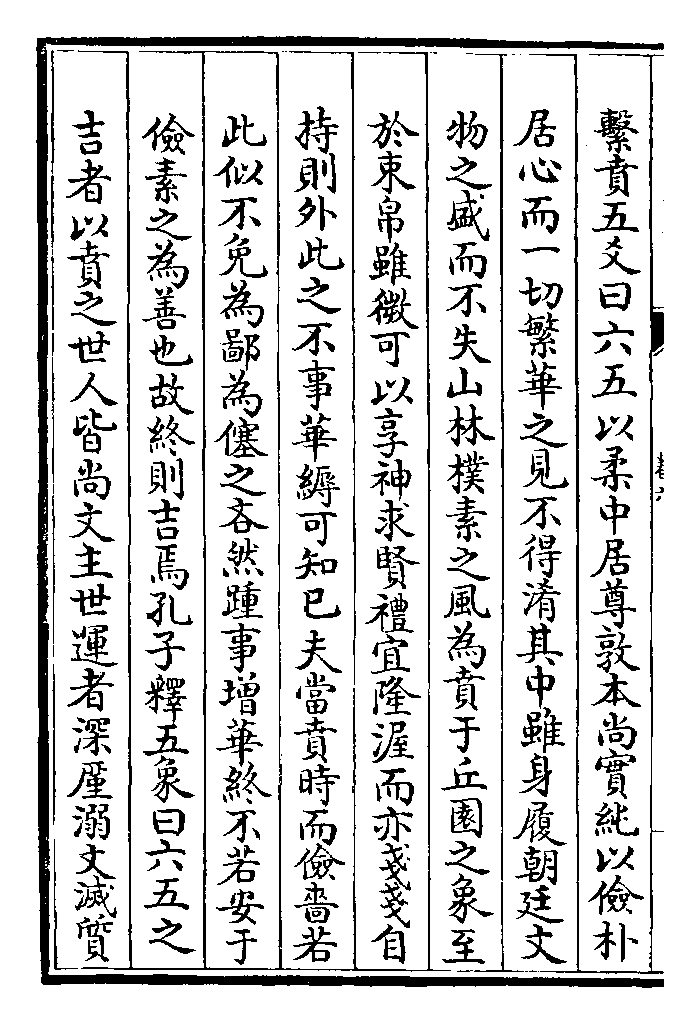 繫賁五爻曰六五以柔中居尊敦本尚實純以儉朴
居心而一切繁華之見不得淆其中雖身履朝廷文
物之盛而不失山林樸素之風為賁于丘園之象至
於束帛雖微可以享神求賢禮宜隆渥而亦戔戔自
持則外此之不事華縟可知已夫當賁時而儉嗇若
此似不免為鄙為僿之吝然踵事增華終不若安于
儉素之為善也故終則吉焉孔子釋五象曰六五之
吉者以賁之世人皆尚文主世運者深厪溺文滅質
卷六